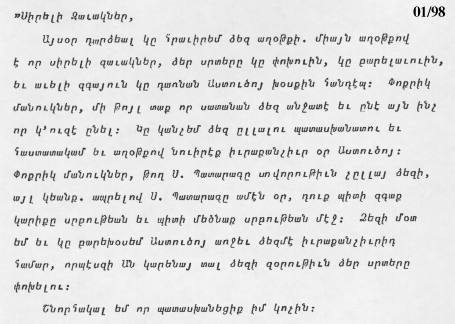 01/98
»Սիրելի Զաւակներ,
Այսօր դարձեալ կը հրաւիրեմ ձեզ աղօթքի. միայն աղօթքով
է որ սիրելի զաւակներ, ձեր սրտերը կը փոխուին, կը բարելաւուին,
եւ աւելի զգայուն կը դառնան Աստուծոյ խօսքին հանդէպ: Փոքրիկ
մանուկներ, մի թոյլ տաք որ սատանան ձեզ անջատէ եւ ընէ այն ինչ
որ կ'ուզէ ընել: Կը կանչեմ ձեզ ըլլալու պատասխանատու եւ
հաստատակամ եւ աղօթքով նուիրէք իւրաքանչիւր օր Աստուծոյ:
Փոքրիկ մանուկներ, թող Ս. Պատարագը սովորութիւն չըլլայ ձեզի,
այլ կեանք. ապրելով Ս. Պատարագը ամէն օր, դուք պիտի զգաք
կարիքը սրբութեան եւ պիտի մեծնաք սրբութեան մէջ: Ձեզի մօտ
եմ եւ կը բարեխօսեմ Աստուծոյ առջեւ ձեզմէ իւրաքանչիւրիդ
համար, որպէսզի Ան կարենայ տալ ձեզի զօրութիւն ձեր սրտերը
փոխելու:
Շնորհակալ եմ որ պատասխանեցիք իմ կոչին: